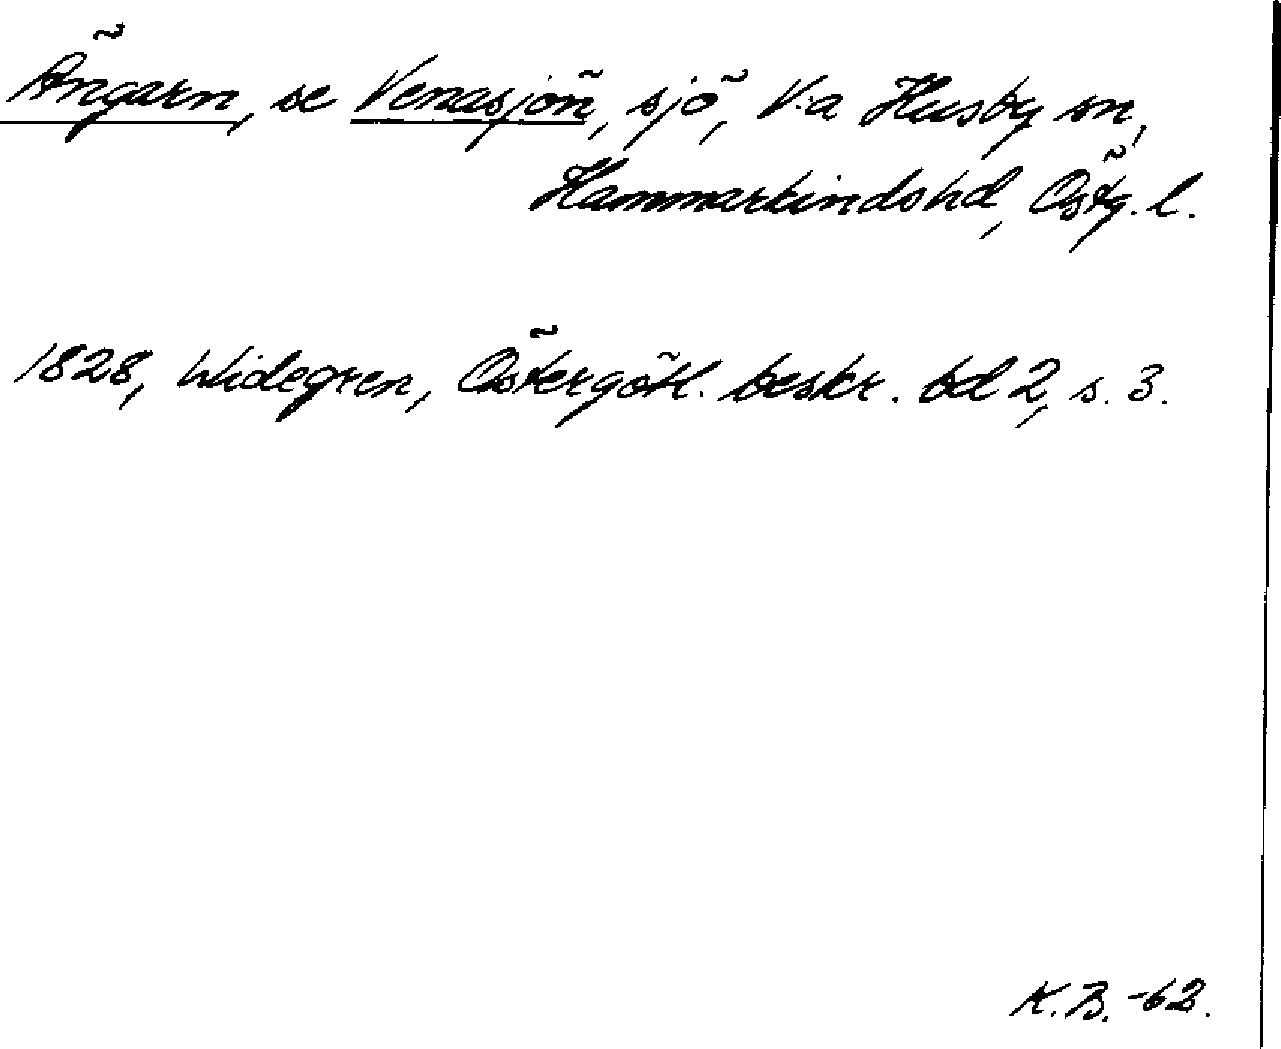 Ängarn, se Venasjön, sjö, V:a Husby sn,
Hammarkindshd, Östg. l.
1828, Widegren, Östergötl. beskr. bd 2, s. 3.
K.B. -62.